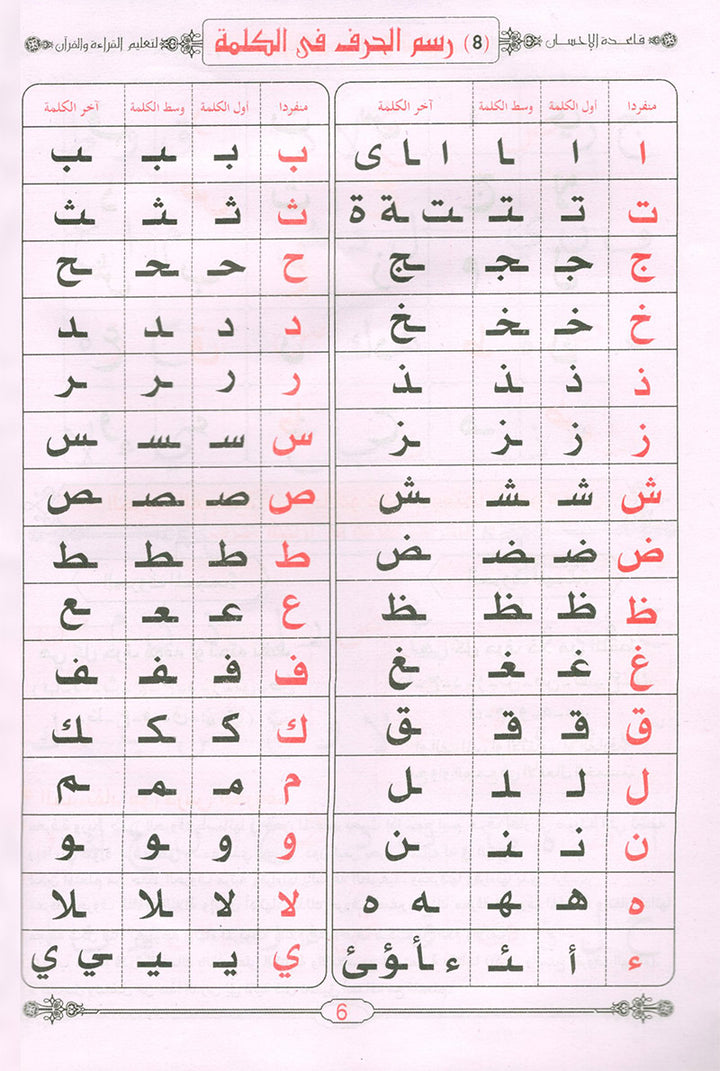 قاعدة الإحسان (8) رسم الحرف في الكلمة لتعليم القراءة والقرآن
منفردا أول الكلمة وسط الكلمة آخر الكلمة منفردا أول الكلمة وسط الكلمة آخر الكلمة
ا ا ـا ا ـا ى ب بـ ـبـ ـب
ت تـ ـتـ ـت ـة ة ث ثـ ـثـ ـث
ج جـ ـجـ ـج ح حـ ـحـ ـح
خ خـ ـخـ ـخ د د ـد ـد
ذ ذ ـذ ـذ ر ر ـر ـر
ز ز ـز ـز س سـ ـسـ ـس
ش شـ ـشـ ـش ص صـ ـصـ ـص
ض ضـ ـضـ ـض ط طـ ـطـ ـط
ظ ظـ ـظـ ـظ ع عـ ـعـ ـع
غ غـ ـغـ ـغ ف فـ ـفـ ـف
ق قـ ـقـ ـق ك كـ ـكـ ـك
ل لـ ـلـ ـل م مـ ـمـ ـم
ن نـ ـنـ ـن و و ـو ـو
ه هـ ـهـ ـه ه لا لا ـلا ـلا
ء أ ـئـ ء ـأ ـؤ ـئ ي يـ ـيـ ـي ي
6